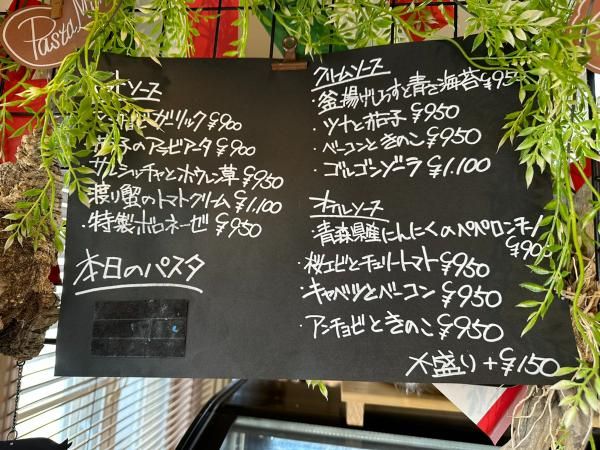 Pasta Menu
トソース
ガリック ¥900
のアラビアータ ¥900
サルシッチャとホウレン草 ¥950
渡り蟹のトマトクリーム ¥1,100
・特製ボロネーゼ ¥950
本日のパスタ
クリームソース
・釜揚げしらすと青さ海苔 ¥950
・ツナと茄子 ¥950
・ベーコンときのこ ¥950
・ゴルゴンゾーラ ¥1,100
オイルソース
・青森県産にんにくのペペロンチーノ
¥900
・桜エビとチェリートマト ¥950
・キャベツとベーコン ¥950
・アンチョビときのこ ¥950
大盛り +¥150